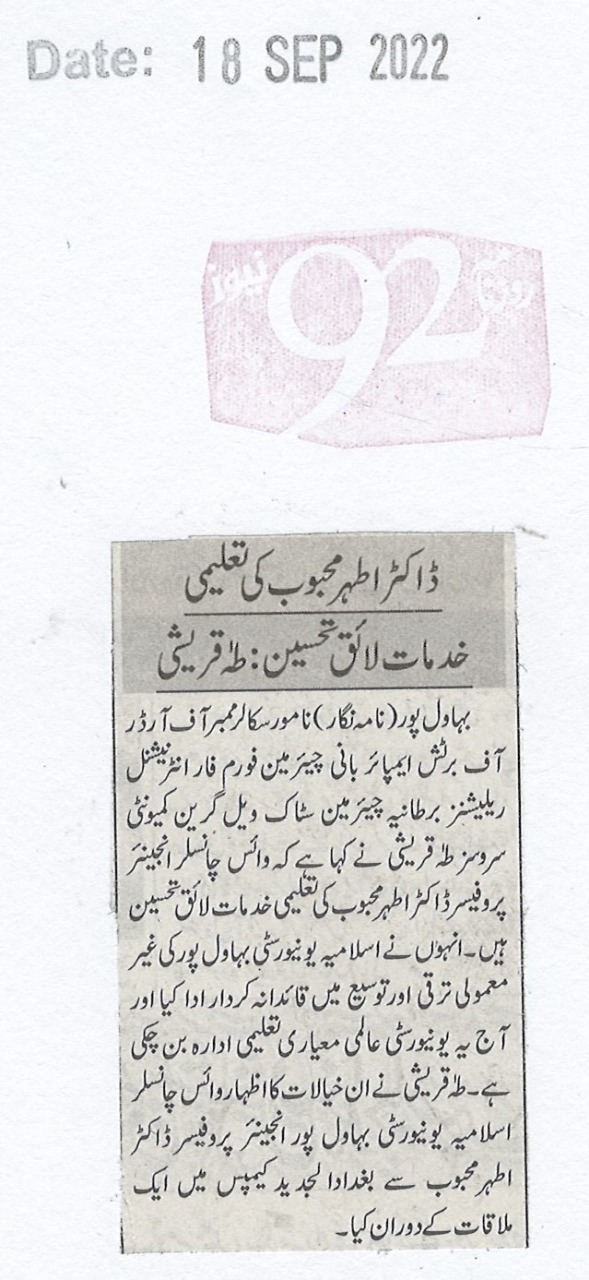 Date: 18 SEP 2022
روزنامہ 92 نیوز
ڈاکٹر اطہر محبوب کی تعلیمی
خدمات لائق تحسین: طہٰ قریشی
بہاول پور (نامہ نگار) نامور سکالر ممبر آف آرڈر
آف برٹش ایمپائر بانی چیئرمین فورم فار انٹرنیشنل
ریلیشنز برطانیہ چیئرمین سٹاک ویل گرین کمیونٹی
سروسز طہٰ قریشی نے کہا ہے کہ وائس چانسلر انجینئر
پروفیسر ڈاکٹر اطہر محبوب کی تعلیمی خدمات لائق تحسین
ہیں۔ انہوں نے اسلامیہ یونیورسٹی بہاول پور کی غیر
معمولی ترقی اور توسیع میں قائدانہ کردار ادا کیا اور
آج یہ یونیورسٹی عالمی معیاری تعلیمی ادارہ بن چکی
ہے۔ طہٰ قریشی نے ان خیالات کا اظہار وائس چانسلر
اسلامیہ یونیورسٹی بہاول پور انجینئر پروفیسر ڈاکٹر
اطہر محبوب سے بغداد الجدید کیمپس میں ایک
ملاقات کے دوران کیا۔